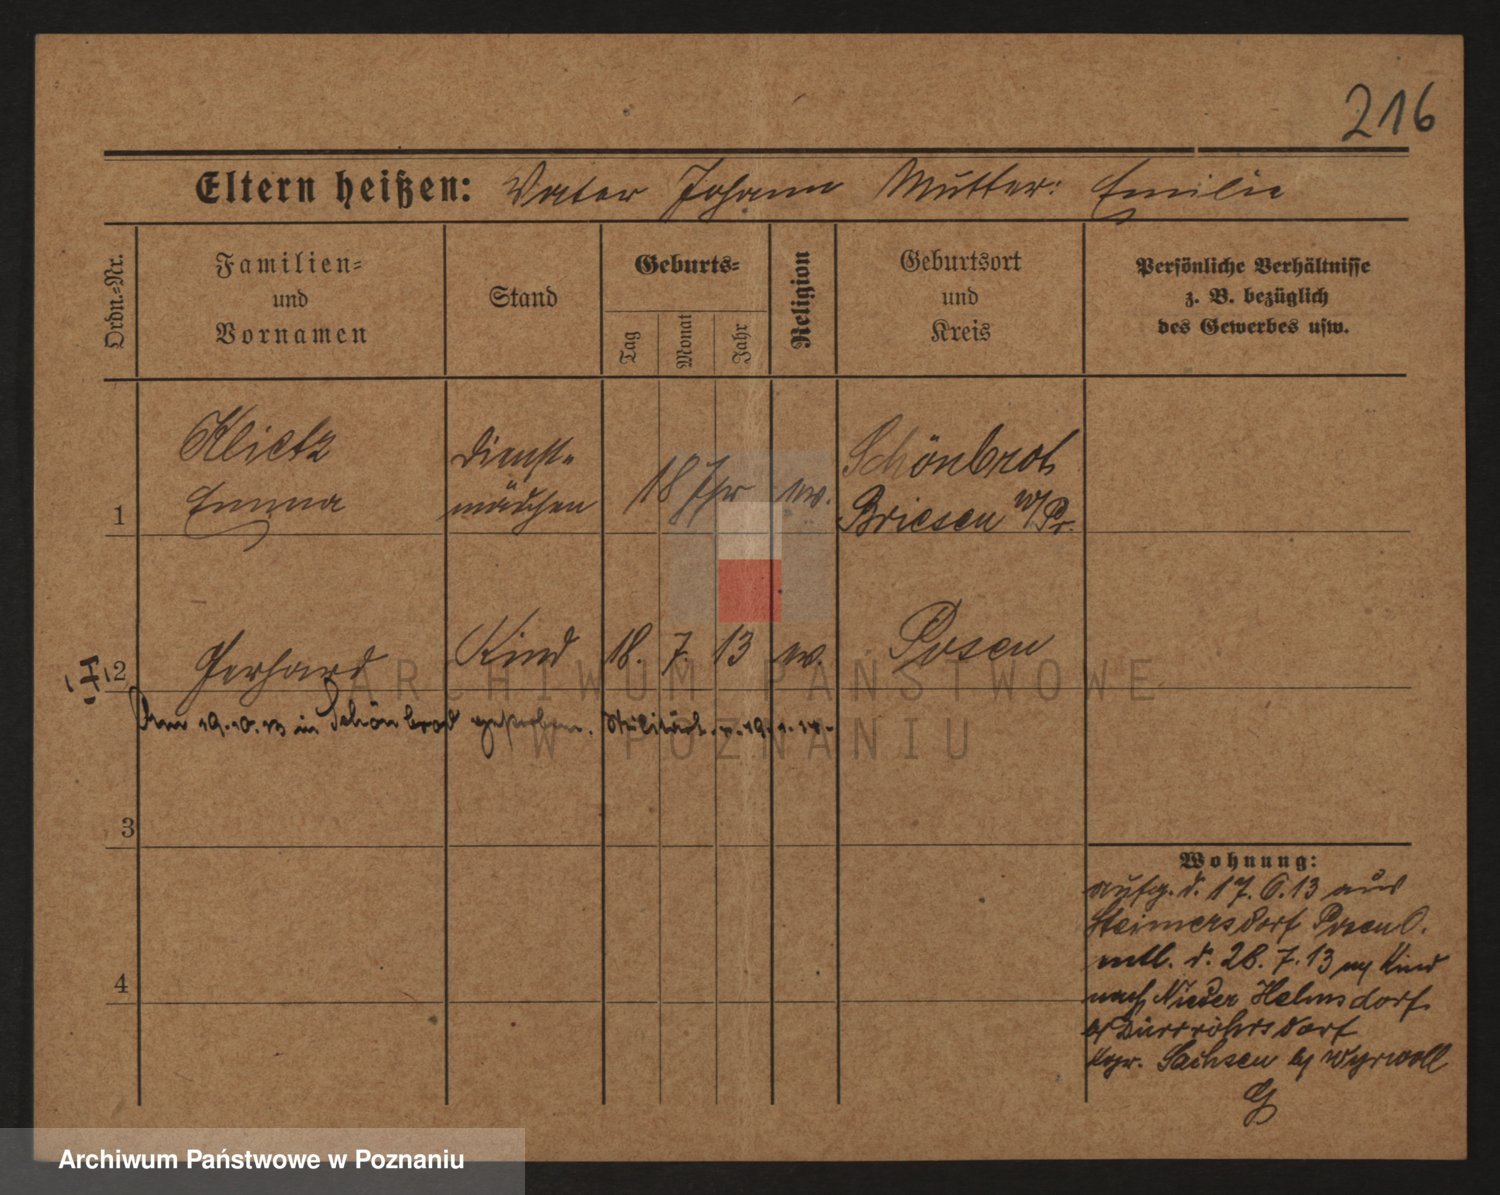 216
Eltern heißen: Vater Johann Mutter: Emilie
Ordn.-Nr.
Familien-
und
Vornamen
Stand
Geburts-
Tag
Monat
Jahr
Religion
Geburtsort
und
Kreis
Persönliche Verhältnisse
z. B. bezüglich
des Gewerbes usw.
Klietz
Emma
1
Dienst-
mädchen
18 Jhr
ev.
Schönbrot
Briesen W/Pr.
2
Gerhard
Kind
18. 7. 13
ev.
Posen
Am 19.10.13 in Schönbrod gestorben.
3
4
Wohnung:
aufg. d. 17. 6. 13 aus
Steimersdorf Posen O.
entl. d. 28. 7. 13 Kind
nach Nieder Helmsdorf
Dürrröhrsdorf
Kgr. Sachsen Wyrwoll
ARCHIWUM PAŃSTWOWE
W POZNANIU
Archiwum Państwowe w Poznaniu